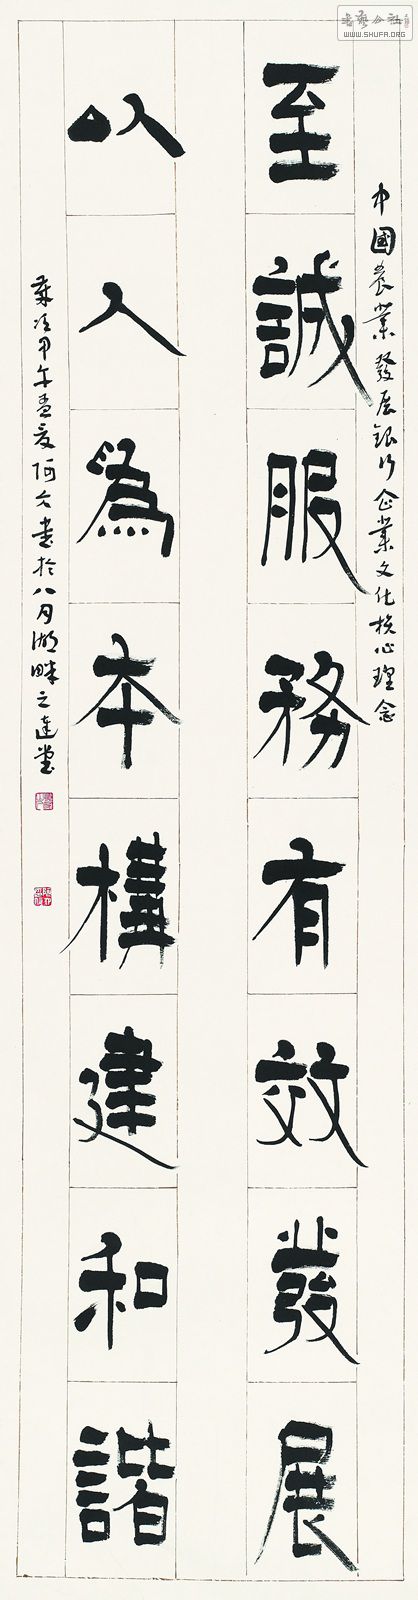 中國農業發展銀行企業文化核心理念
至誠服務有效發展
以人為本構建和諧
歲次甲午孟夏阿文書於八月湖畔之達堂
書藝公社
WWW.SHUFA.ORG